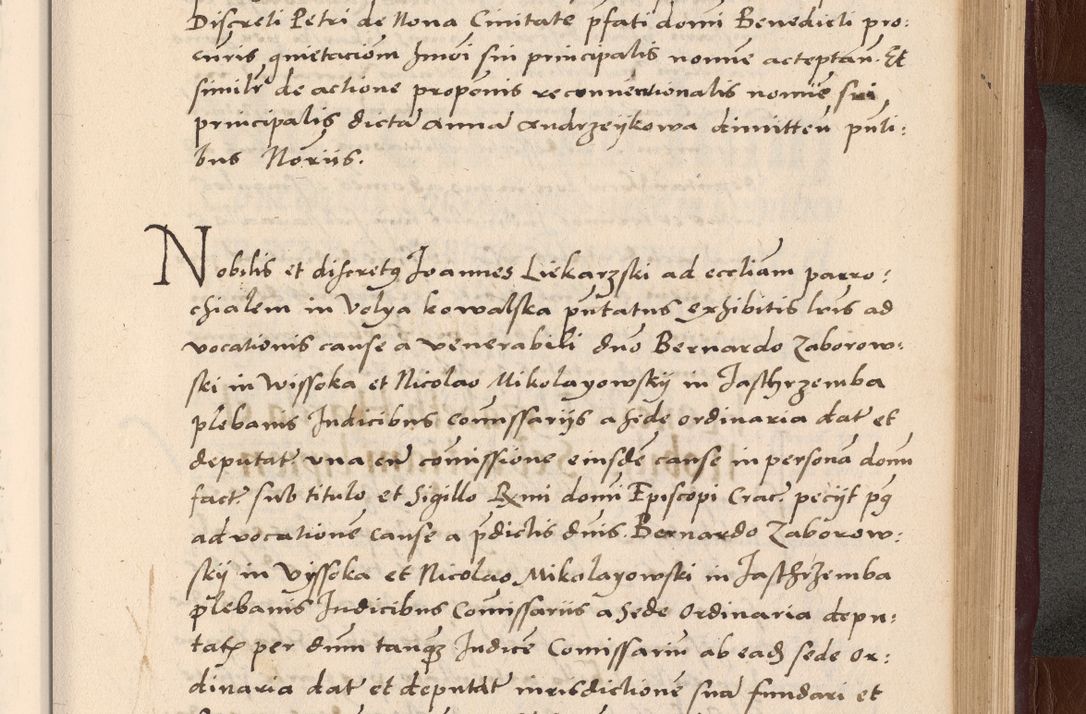 Discreti Petri de Nova Civitate pfati domi Benedicti pro:
curis quietaciom hmoi sui principalis nomine acceptan. Et
similr de actione proponis reconventionalis nomie sui
principalis dicta Anna Andrzeykowa dimitten pnti:
bus Noriis.
Nobilis et discretq Joannes Liekarzski ad eccliam parro:
chialem in Volya kowalska pntatus exhibitis lris ad
vocationis cause a venerabili dno Bernardo Zaborow:
ski in Wissoka et Nicolao Mikolayowskij in Jasthrzemba
plebanis Iudicibus comissarijs a Sede ordinaria dat et
deputat una cu comissione eiusde cause in persona domi
fact sub titulo et Sigillo Rmi domi Episcopi Crac. pecijt pq
ad vocatione cause a pdictis dnis Bernardo Zaborow:
skij in Vyssoka et Nicolao Mikolayowski in Jasthrzemba
plebanis Iudicibus Comissariis a Sede Ordinaria depu:
tat per dnm tanq Iudice Comissariu ab ead sede or:
dinaria dat et deputat iurisdictione sua fundari et